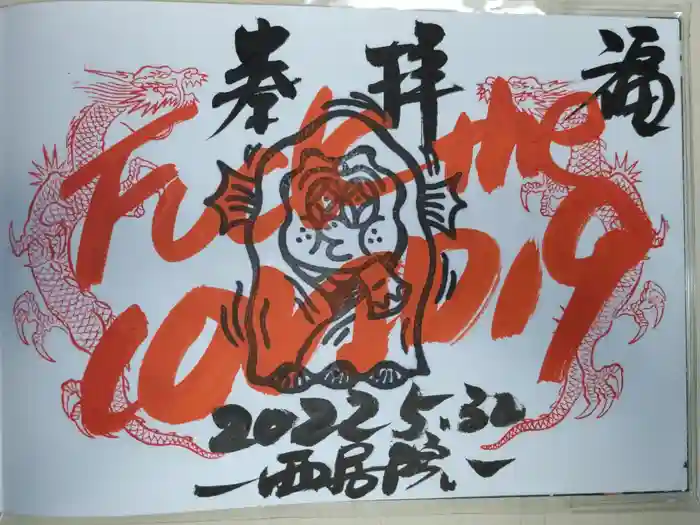 奉拝 福
Fuck the
COVID19
2022.5.32
一西居院、一